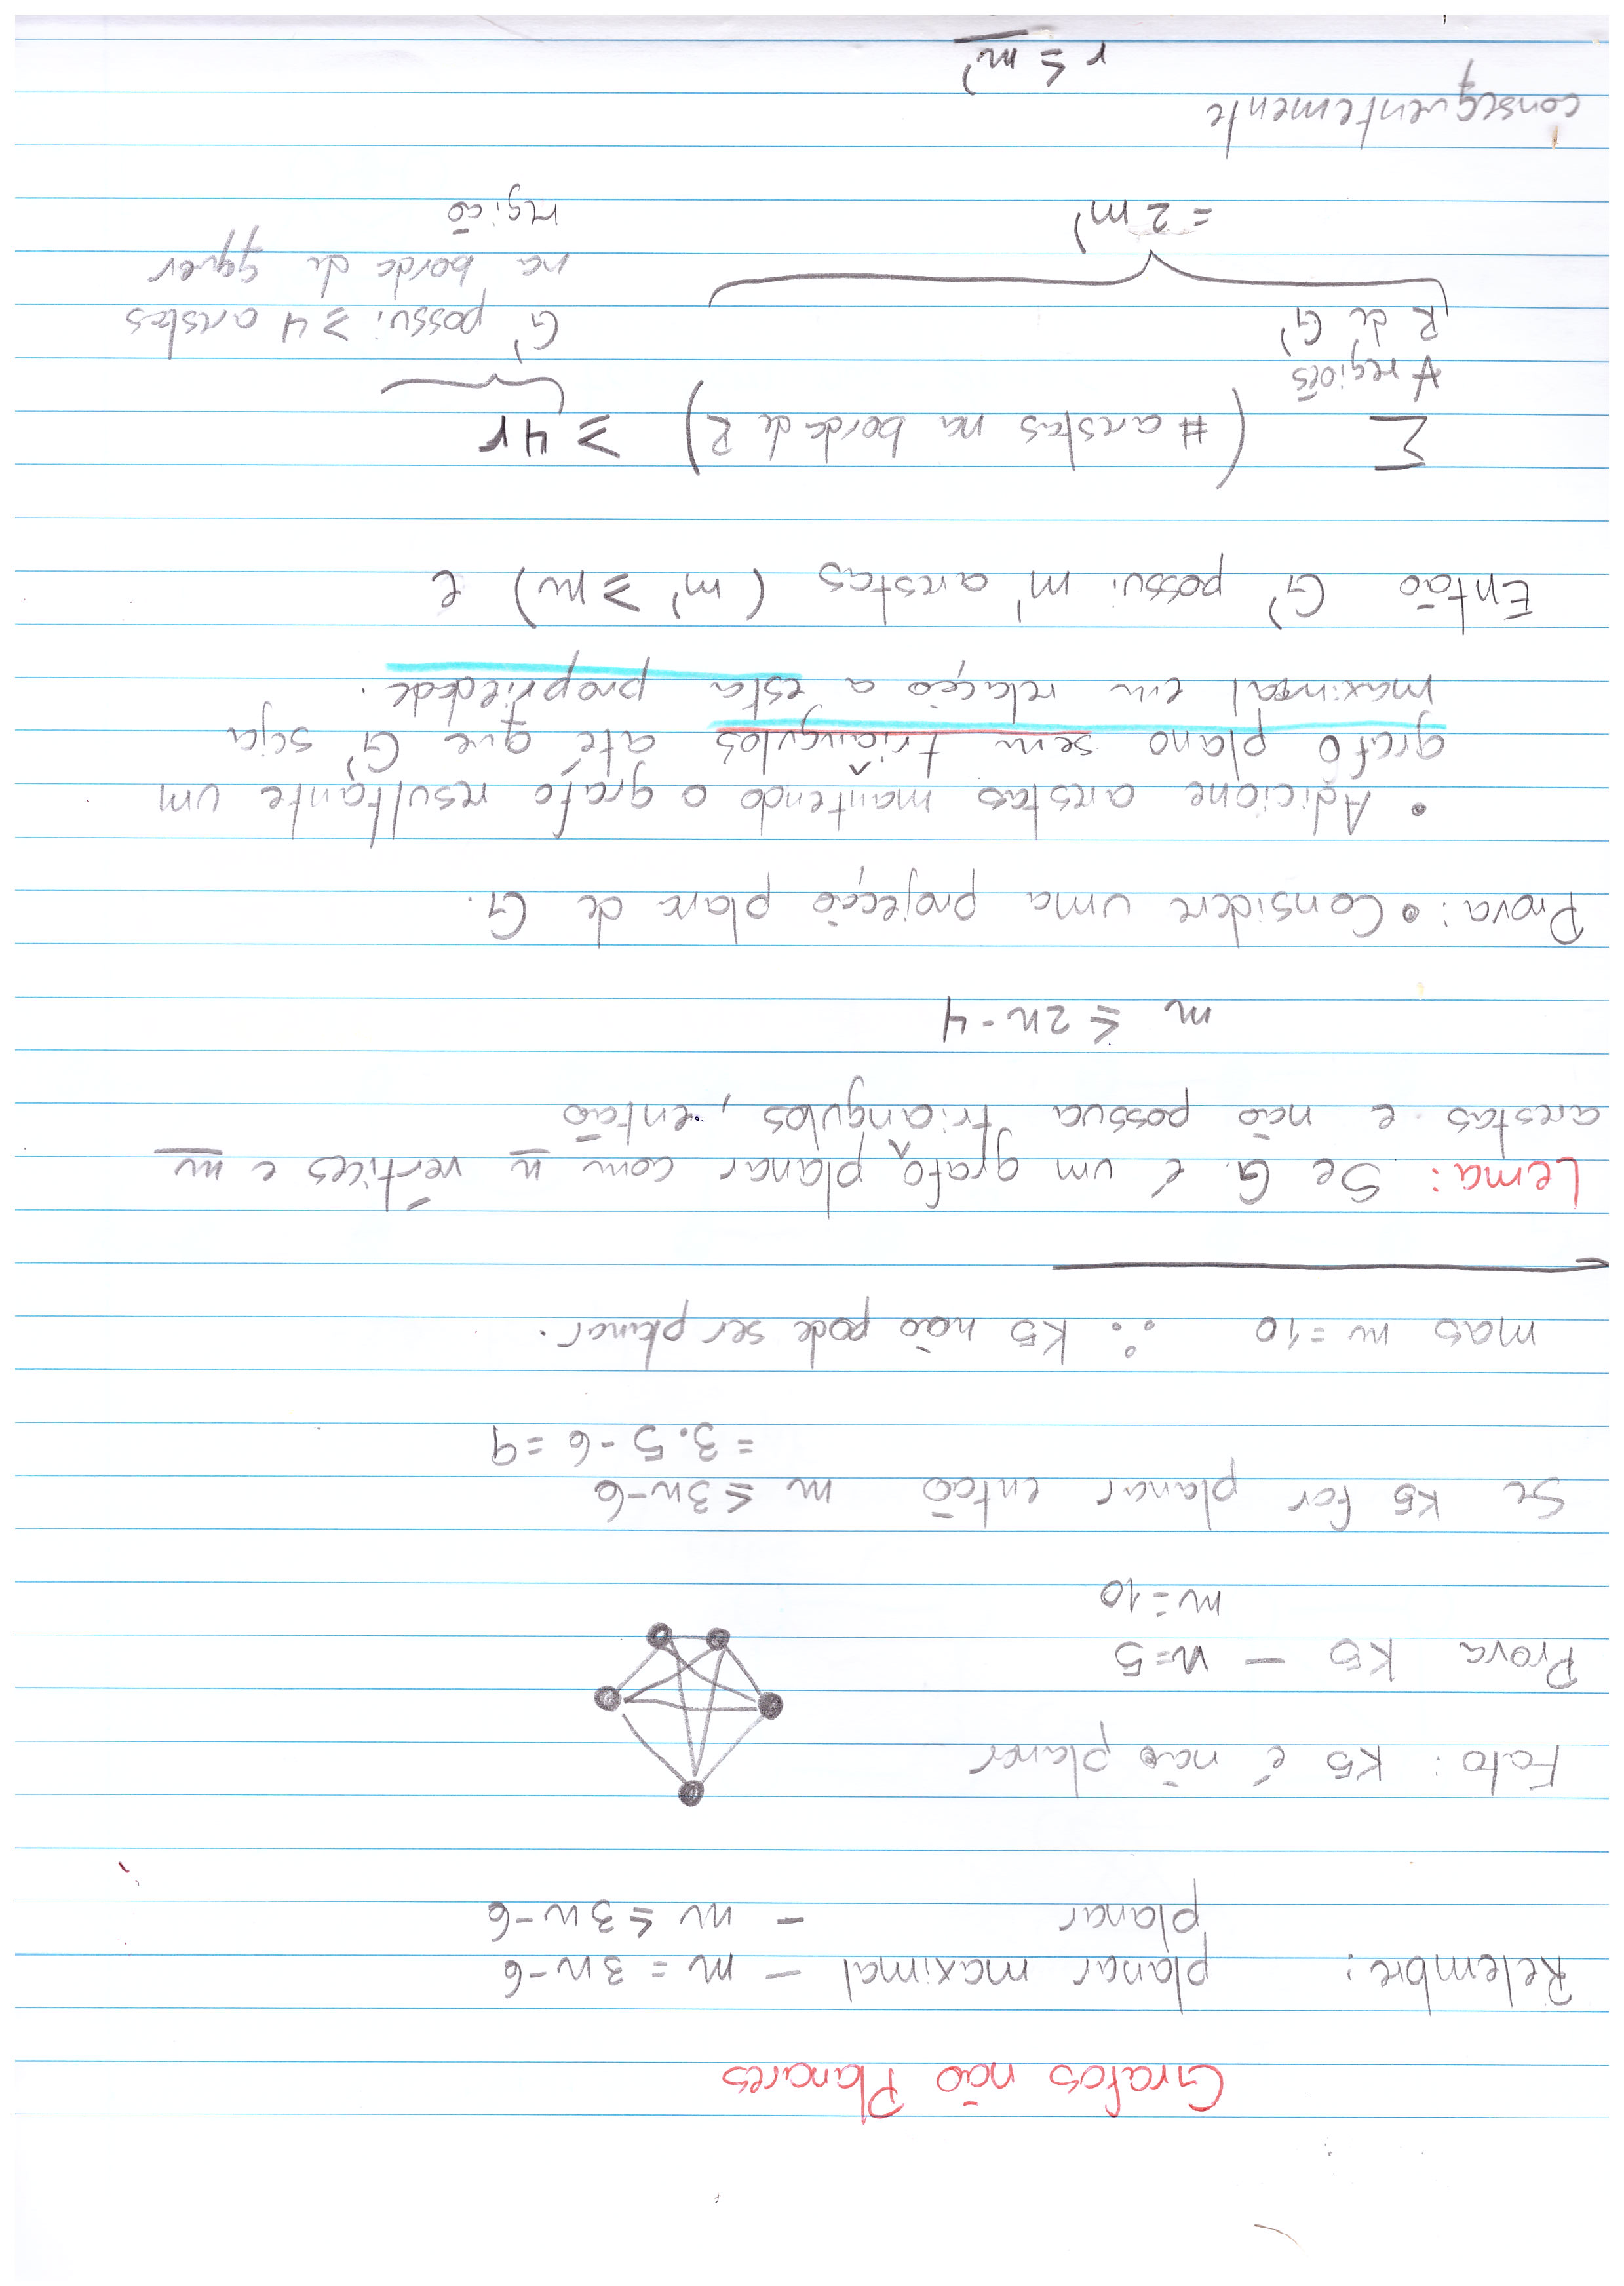 Grafos não Planares
Relembre: planar maximal - m = 3n-6
planar - m ≤ 3n-6
Fato: K5 é não planar
Prova K5 - n=5
m=10
Se K5 for planar então m ≤ 3n-6
= 3.5-6 = 9
mas m=10 ∴ K5 não pode ser planar.
Lema: Se G. é um grafo planar com n vértices e m
arestas e não possua triângulos, então
m ≤ 2n-4
Prova: • Considere uma projeção plana de G.
• Adicione arestas mantendo o grafo resultante um
grafo plano sem triângulos até que G' seja
maximal em relação a esta propriedade.
Então G' possui m' arestas (m' ≥ m) e
∑ (# arestas na borda de R) ≥ 4r
∀ regiões
R de G'
G' possui ≥ 4 arestas
na borda de qquer
região
= 2m'
consequentemente
r ≤ m'